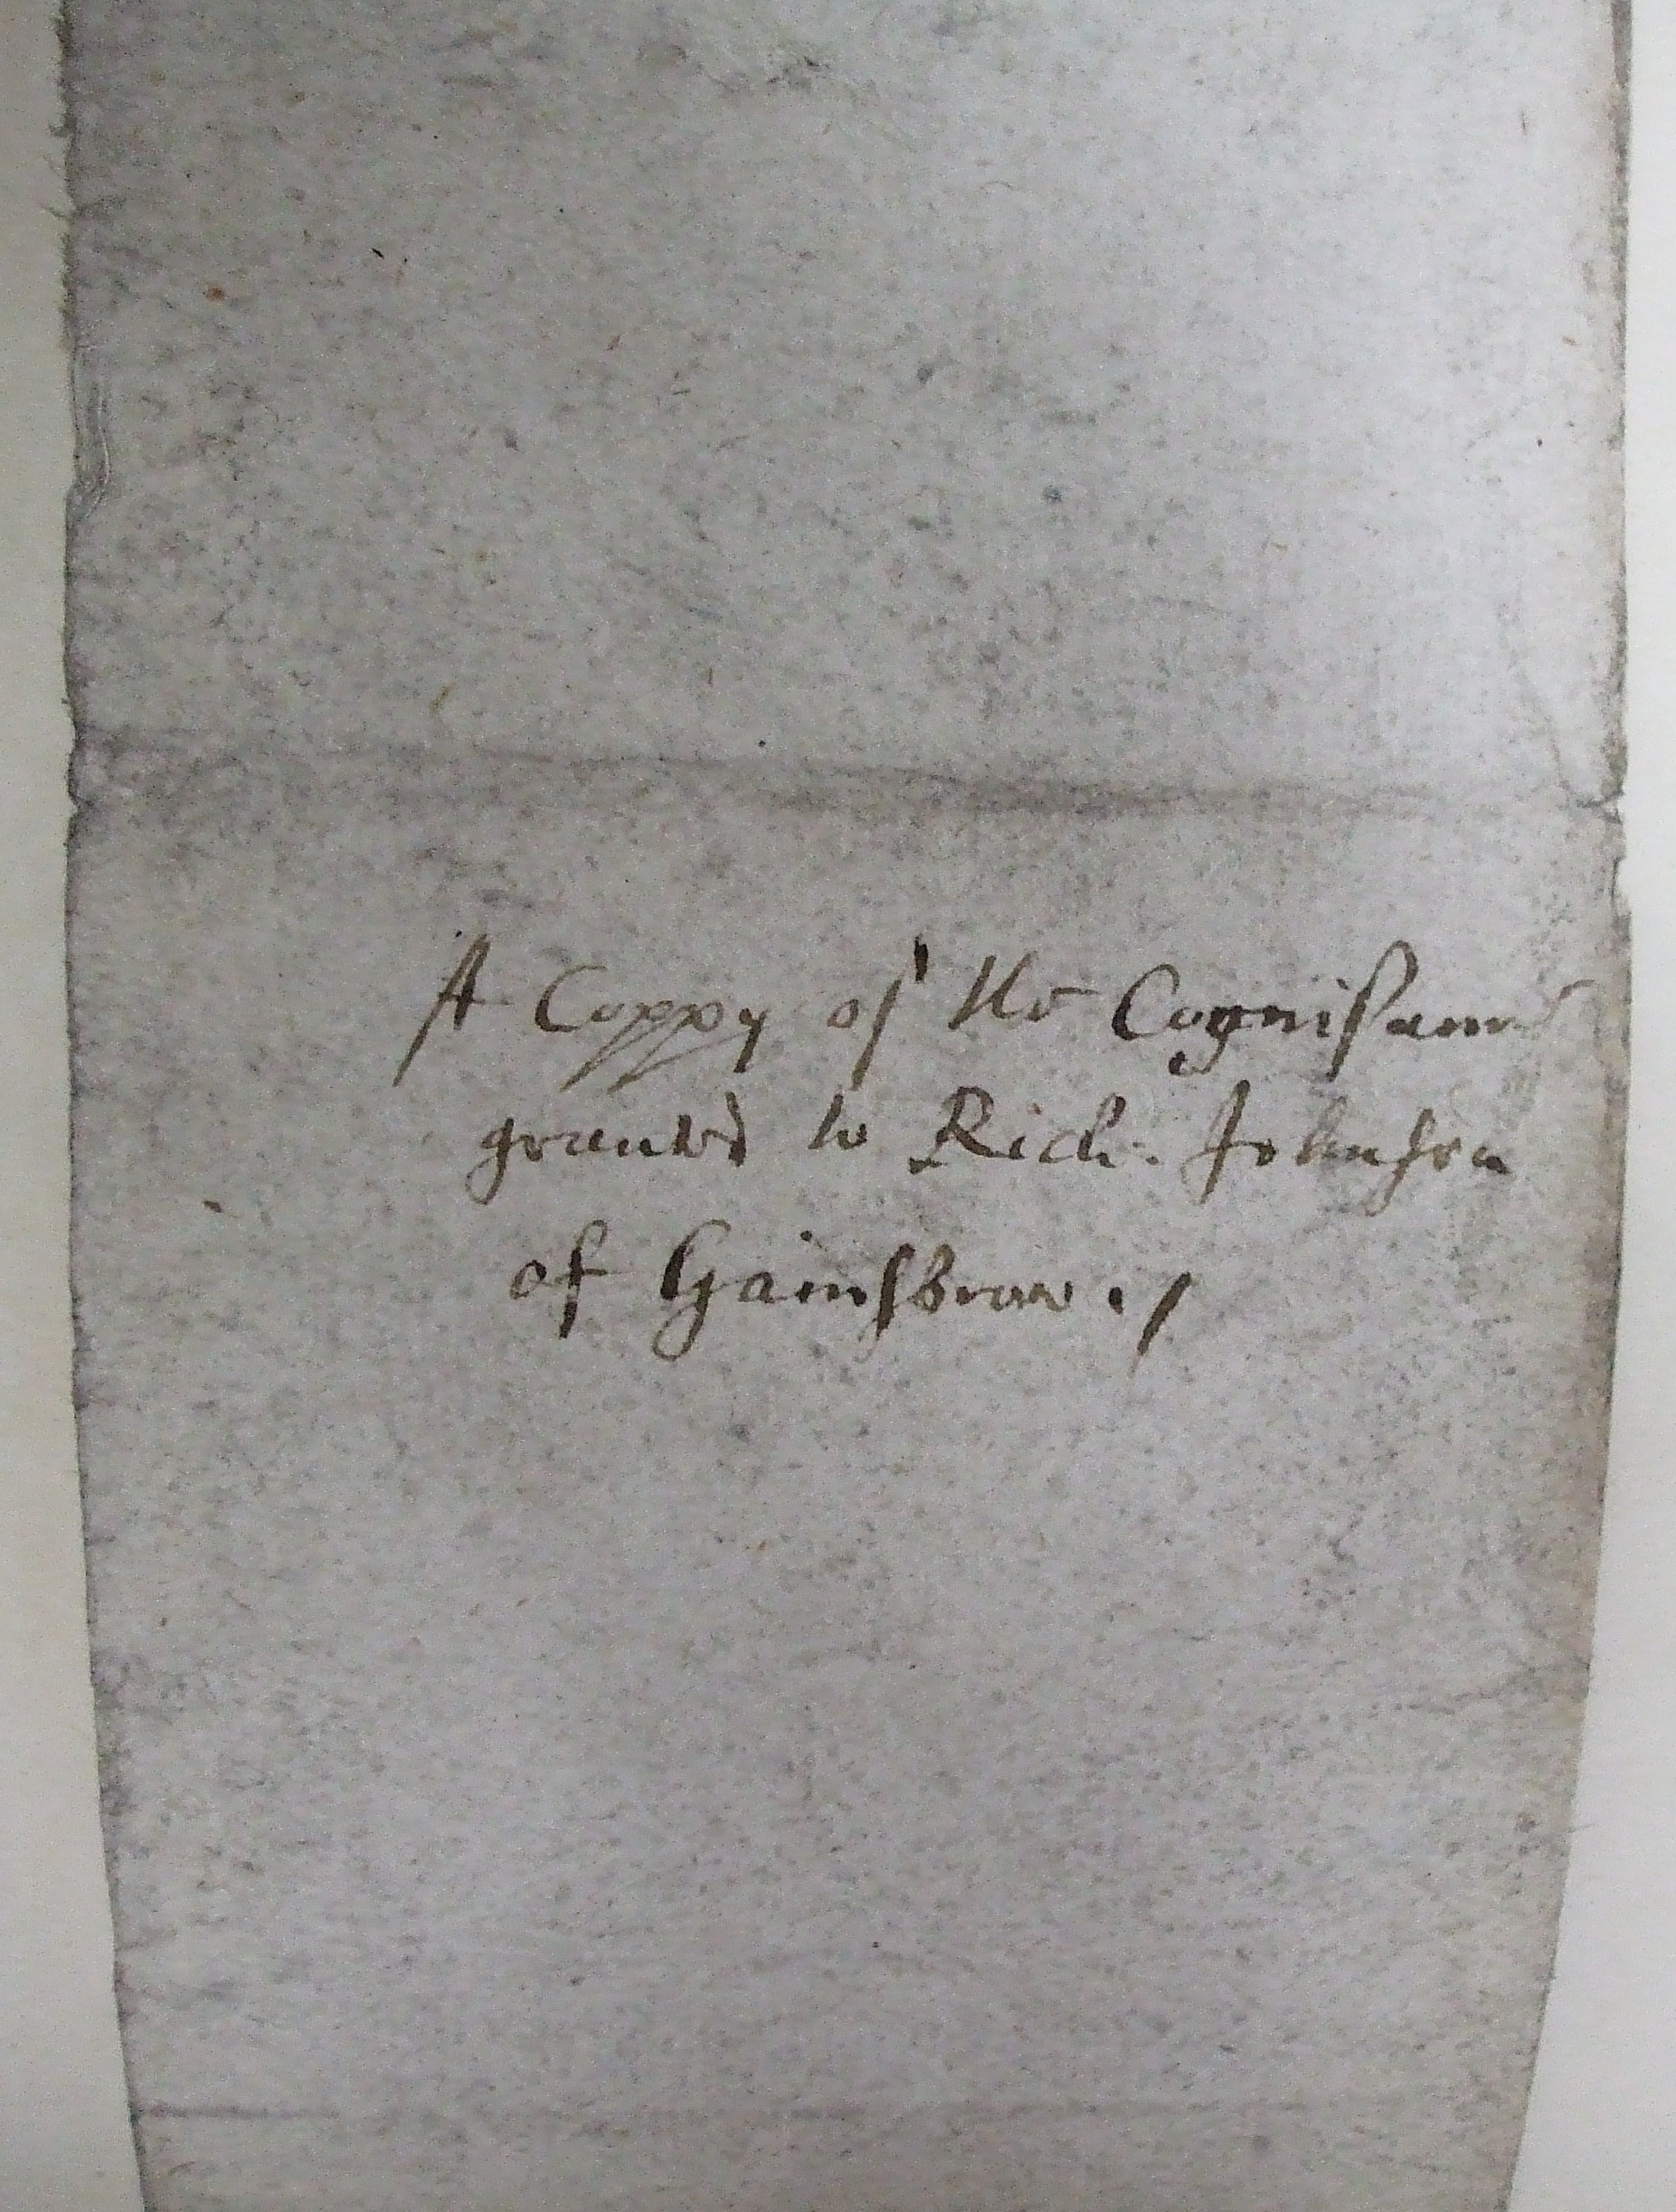 A Coppy of the Cognisance
granted to Rich: Johnson
of Gainsbrow ./